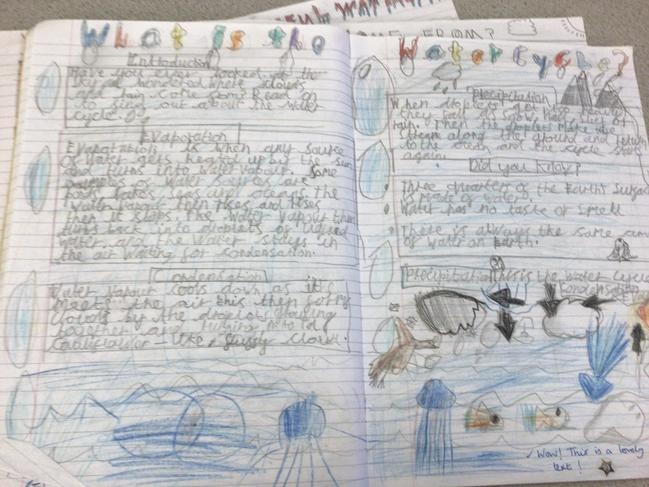 What is the
Introduction
Have you ever looked at the
sky and wondered where clouds
and rain come from? Read on
to find out about the water
cycle.
Evaporation
Evaporation is when any source
of water gets heated up by the sun
and turns into water vapour. Some
of water sources are
lakes and oceans. The
water vapour then rises and rises
then it stops. The water vapour then
turns back into droplets of
water and the water stays in
the air waiting for condensation.
Condensation
Water vapour cools down as it
meets the air this then forms
clouds by the droplets
together and turning into
- like a fluffy cloud.
FROM?
Water Cycle?
Precipitation
When droplets get too heavy
they fall as snow hail
rain. Then the droplets make
stream along the ground and return
to the ocean and the cycle starts
again.
Did you know?
Three quarters of the Earth surface
is made of water.
Water has no taste or smell
There is always the same
of water on Earth.
Precipitation This is the water cycle
Condensation
Wow! This is a lovely
text!